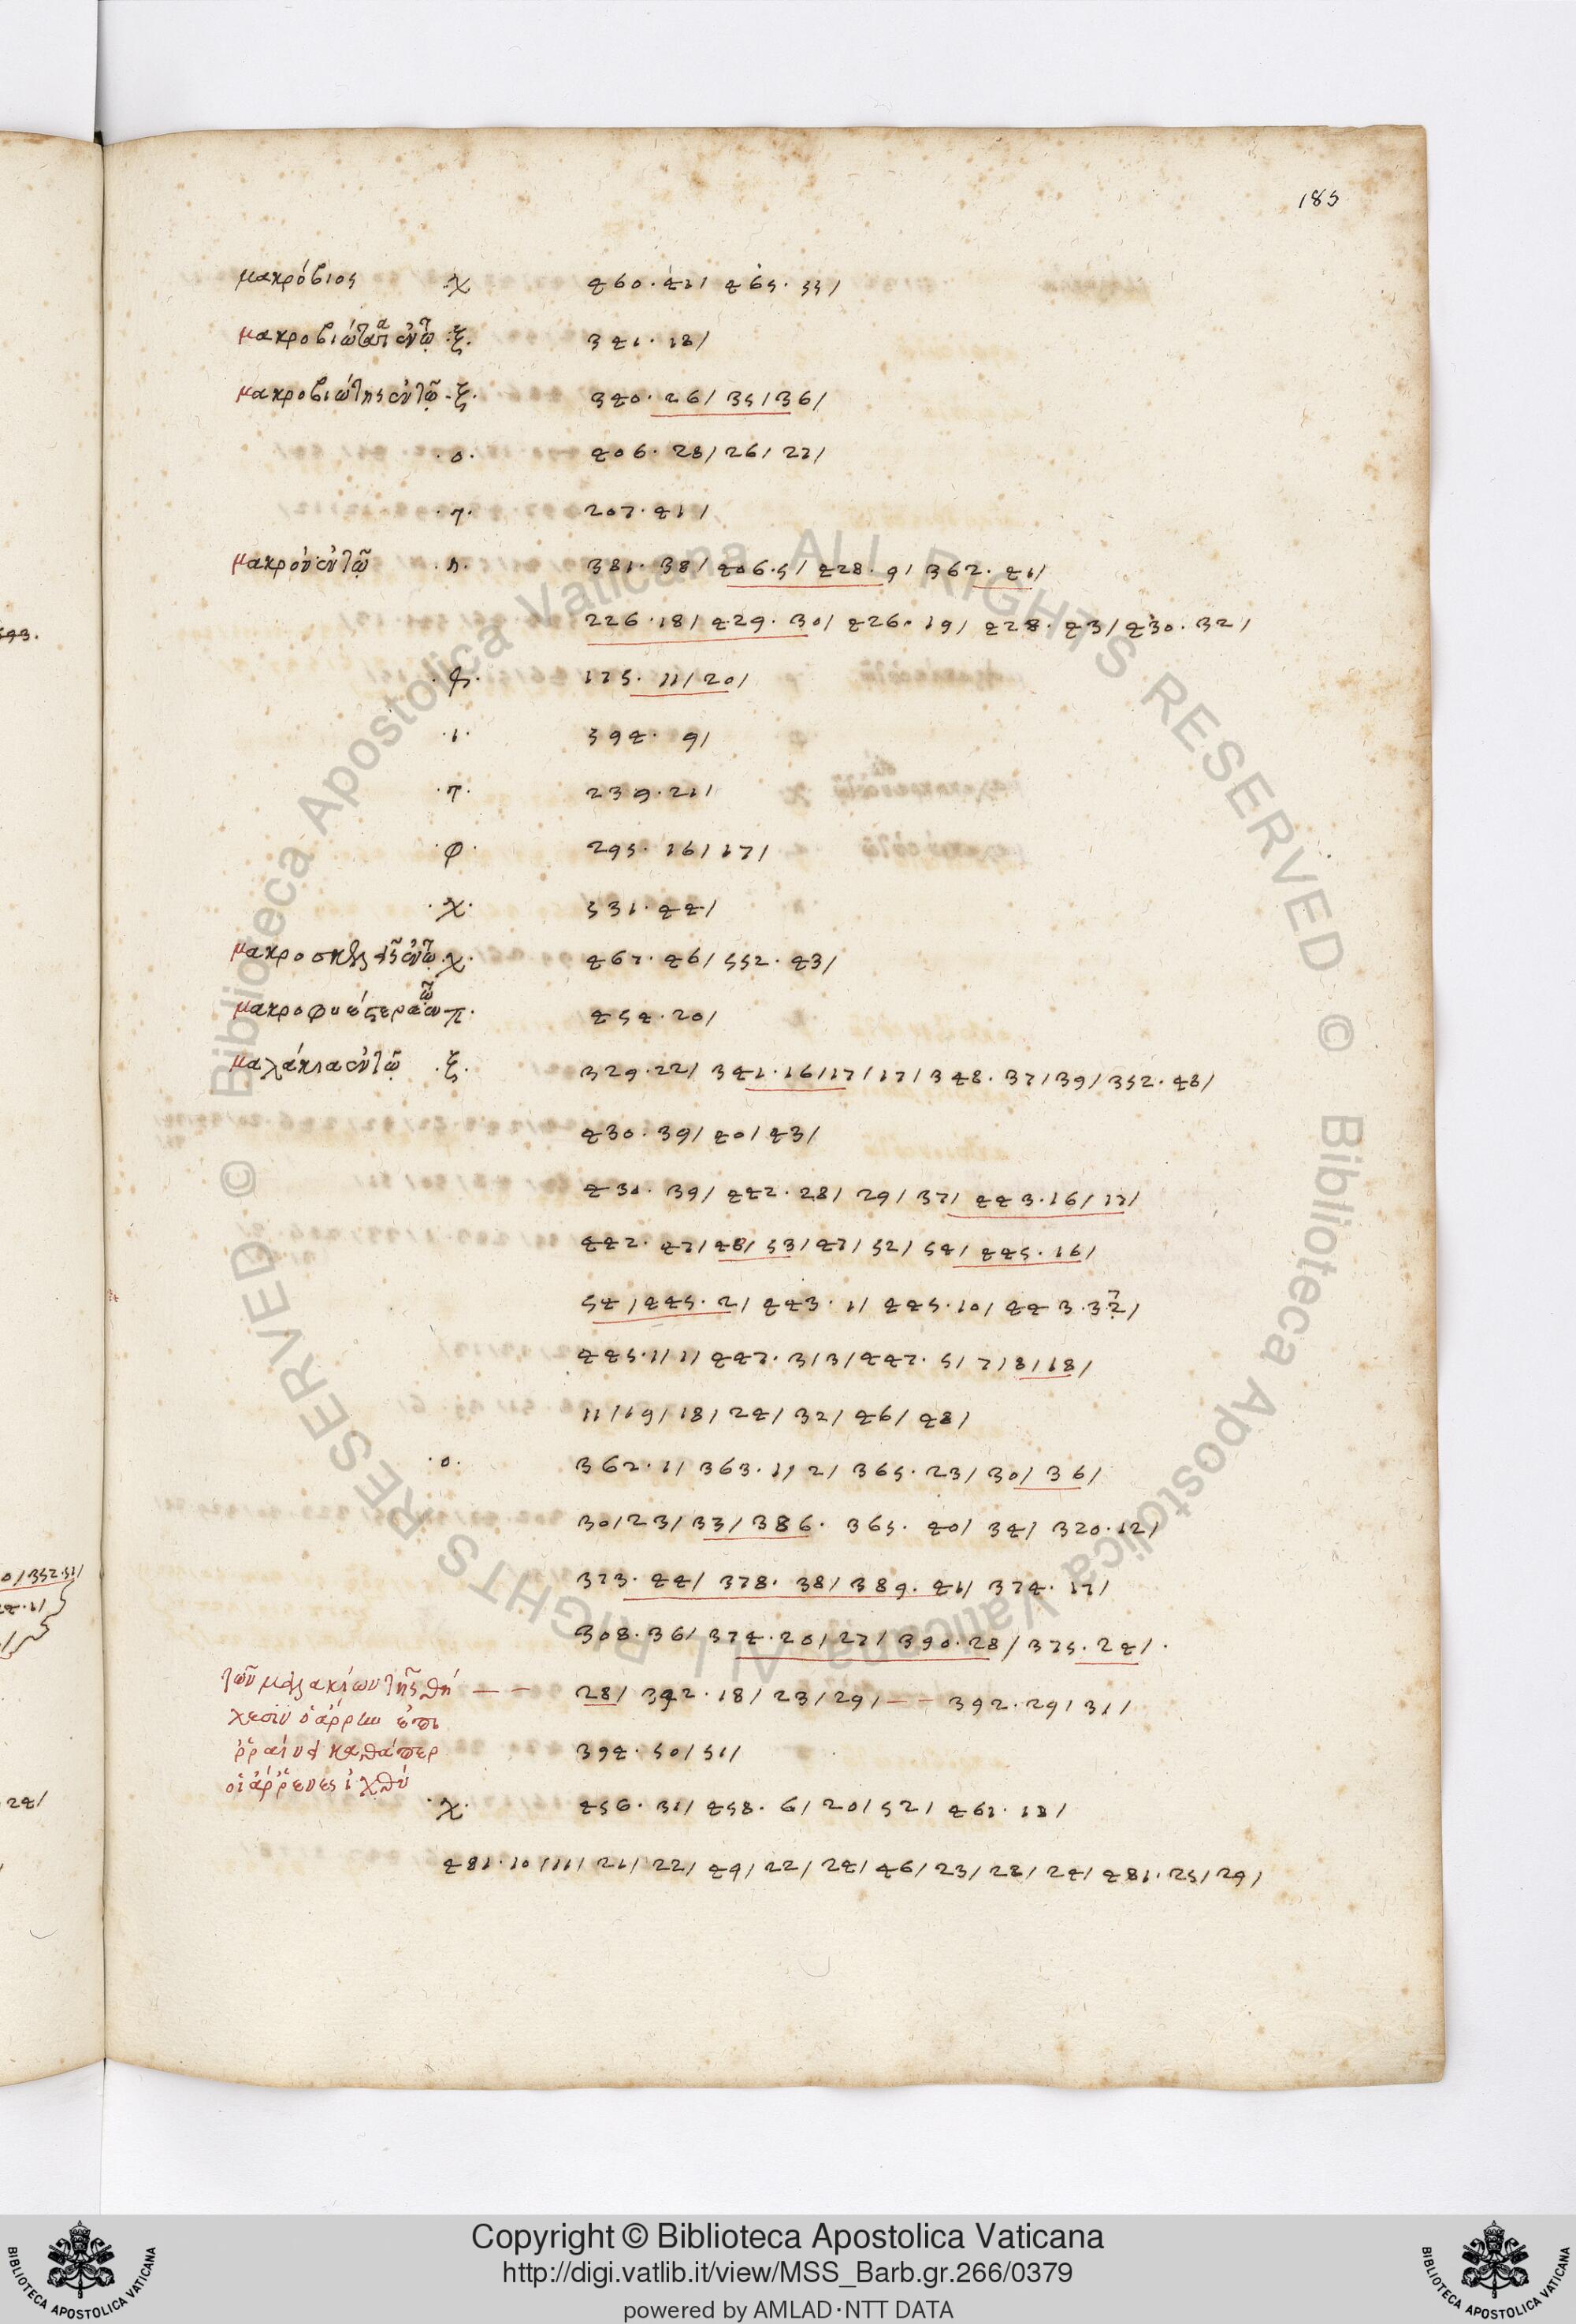 185
μακρόβιος ·χ 460·41/ 465·55/
μακροβιώτατα ἐν τῷ ·ξ· 341·18/
μακροβιώτης ἐν τῷ ·ξ· 340·26/35/36/
·ο· 406·28/26/27/
·τ· 207·41/
μακρόν ἐν τῷ ·π· 381·38/406·5/428·9/362·41/
226·18/429·30/426·19/428·43/430·32/
175·11/20/
·ι· 594·9/
·τ· 239·21/
·φ· 295·16/17/
·χ· 531·44/
·χ· 467·46/552·43/
π· 454·20/
μαλάκια ἐν τῷ ·ξ· 329·22/341·16/17/17/348·37/39/352·48/
430·39/40/43/
430·39/442·28/29/37/443·16/17/
442·47/48/53/47/52/54/445·16/
54/445·2/443·1/445·10/443·3
445·1/1/447·3/3/447·5/7/8/18/
11/19/18/24/32/46/48/
·ο· 362·1/363·1/2/365·23/30/36/
30/23/33/386·365·40/34/320·12/
373·44/378·38/389·41/374·17/
308·36/374·20/27/390·28/375·24/·
τῶν μαλακίων τῆς θη — — 28/392·18/23/29/ — — 392·29/31/
ὁ ἄρρην ἐπι
καθάπερ 394·50/51/
οἱ ἄρρενες ἰχθύ
·χ· 456·31/458·6/20/52/461·18/
481·10/11/21/22/49/22/24/46/23/28/24/481·25/29/
593.
0/352·51/
24/
© Biblioteca Apostolica Vaticana ALL RIGHTS RESERVED © Biblioteca Apostolica Vaticana ALL RIGHTS RESERVED
Copyright © Biblioteca Apostolica Vaticana
http://digi.vatlib.it/view/MSS_Barb.gr.266/0379
powered by AMLAD·NTT DATA
BIBLIOTECA APOSTOLICA VATICANA
BIBLIOTECA APOSTOLICA VATICANA